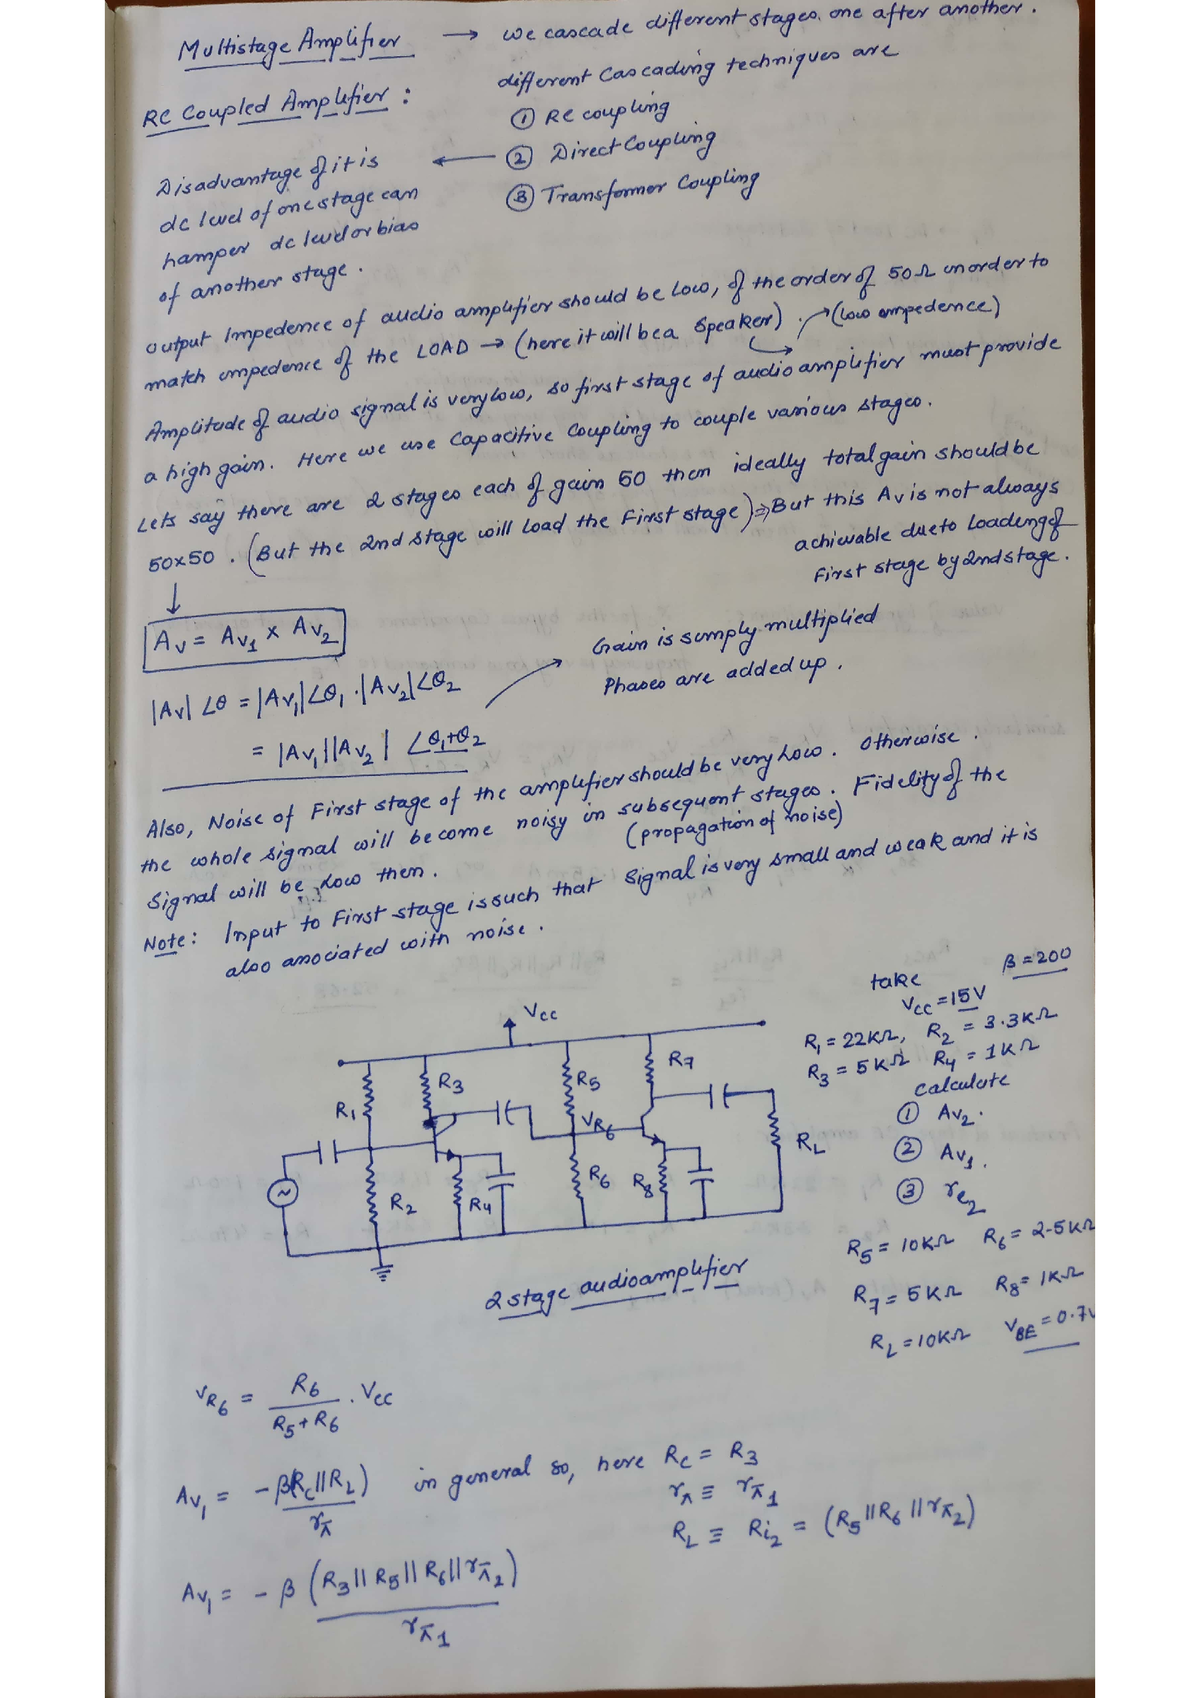 Multistage Amplifier → we cascade different stages. one after another.
different Cascading techniques are
RC Coupled Amplifier :
① RC coupling
② Direct Coupling
③ Transformer Coupling
Disadvantage of it is ←
dc level of one stage can
hamper dc level or bias
of another stage.
output Impedence of audio amplifier should be low, of the order of 50Ω in order to
match impedence of the LOAD → (here it will be a speaker). (low impedence)
Amplitude of audio signal is very low, so first stage of audio amplifier must provide
a high gain. Here we use Capacitive Coupling to couple various stages.
Lets say there are 2 stages each of gain 50 then ideally total gain should be
50x50. (But the 2nd stage will load the First stage) ⇒ But this Av is not always
achievable due to Loading of
First stage by 2nd stage.
↓
Av = Av1 x Av2
Gain is simply multiplied
Phases are added up.
|Av| ∠θ = |Av1|∠θ1 . |Av2|∠θ2
= |Av1||Av2| ∠θ1+θ2
Also, Noise of First stage of the amplifier should be very low. Otherwise.
the whole signal will become noisy in subsequent stages. Fidelity of the
(propagation of noise)
Signal will be low then.
Note: Input to First stage is such that signal is very small and weak and it is
also associated with noise.
take β = 200
Vcc = 15V
R1 = 22KΩ, R2 = 3.3KΩ
R3 = 5KΩ R4 = 1KΩ
calculate
① Av2.
② Av1.
③ re2
R5 = 10KΩ R6 = 2.5KΩ
R7 = 5KΩ R8 = 1KΩ
RL = 10KΩ VBE = 0.7V
Vcc
R1
R3
R5
R7
VR6
RL
R2
R4
R6
R8
~
2 stage audioamplifier
VR6 = R6 / (R5 + R6) . Vcc
Av1 = -β(Rc||RL) / rπ in general so, here Rc = R3
rπ ≡ rπ1
RL ≡ Ri2 = (R5||R6||rπ2)
Av1 = -β (R3||R5||R6||rπ2) / rπ1